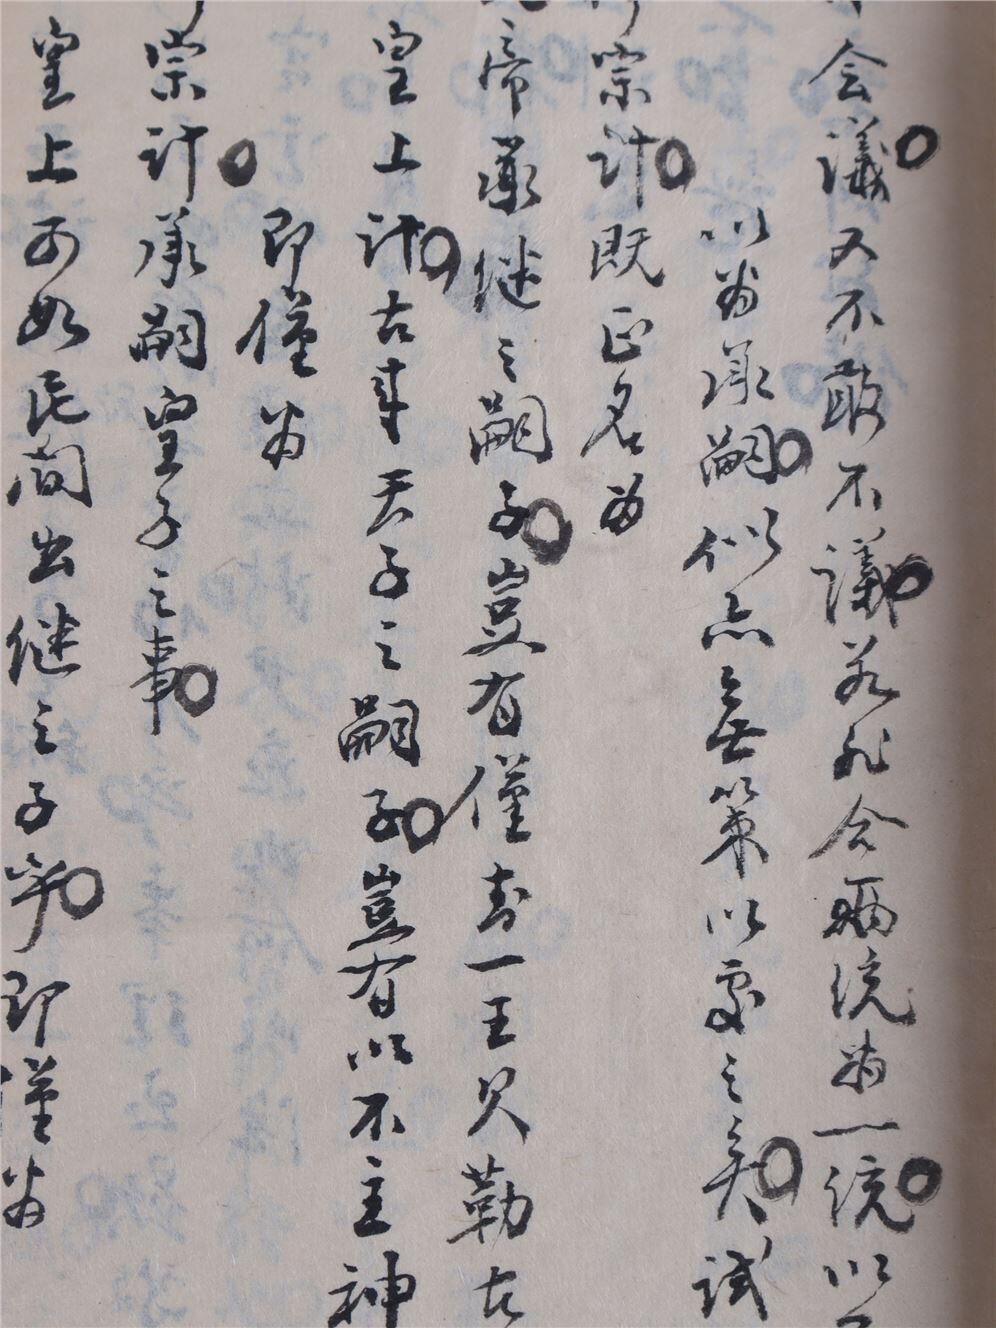 会議又不敢不議若非合兩統為一統以
以為承嗣似亦無策以處之矣試
宗計既正名為
帝承継之嗣子豈有僅封一王只勒在
皇上計古来天子之嗣子豈有以不主神
即僅為
宗計承嗣皇子之事
皇上可如民間出継之子乎即僅為